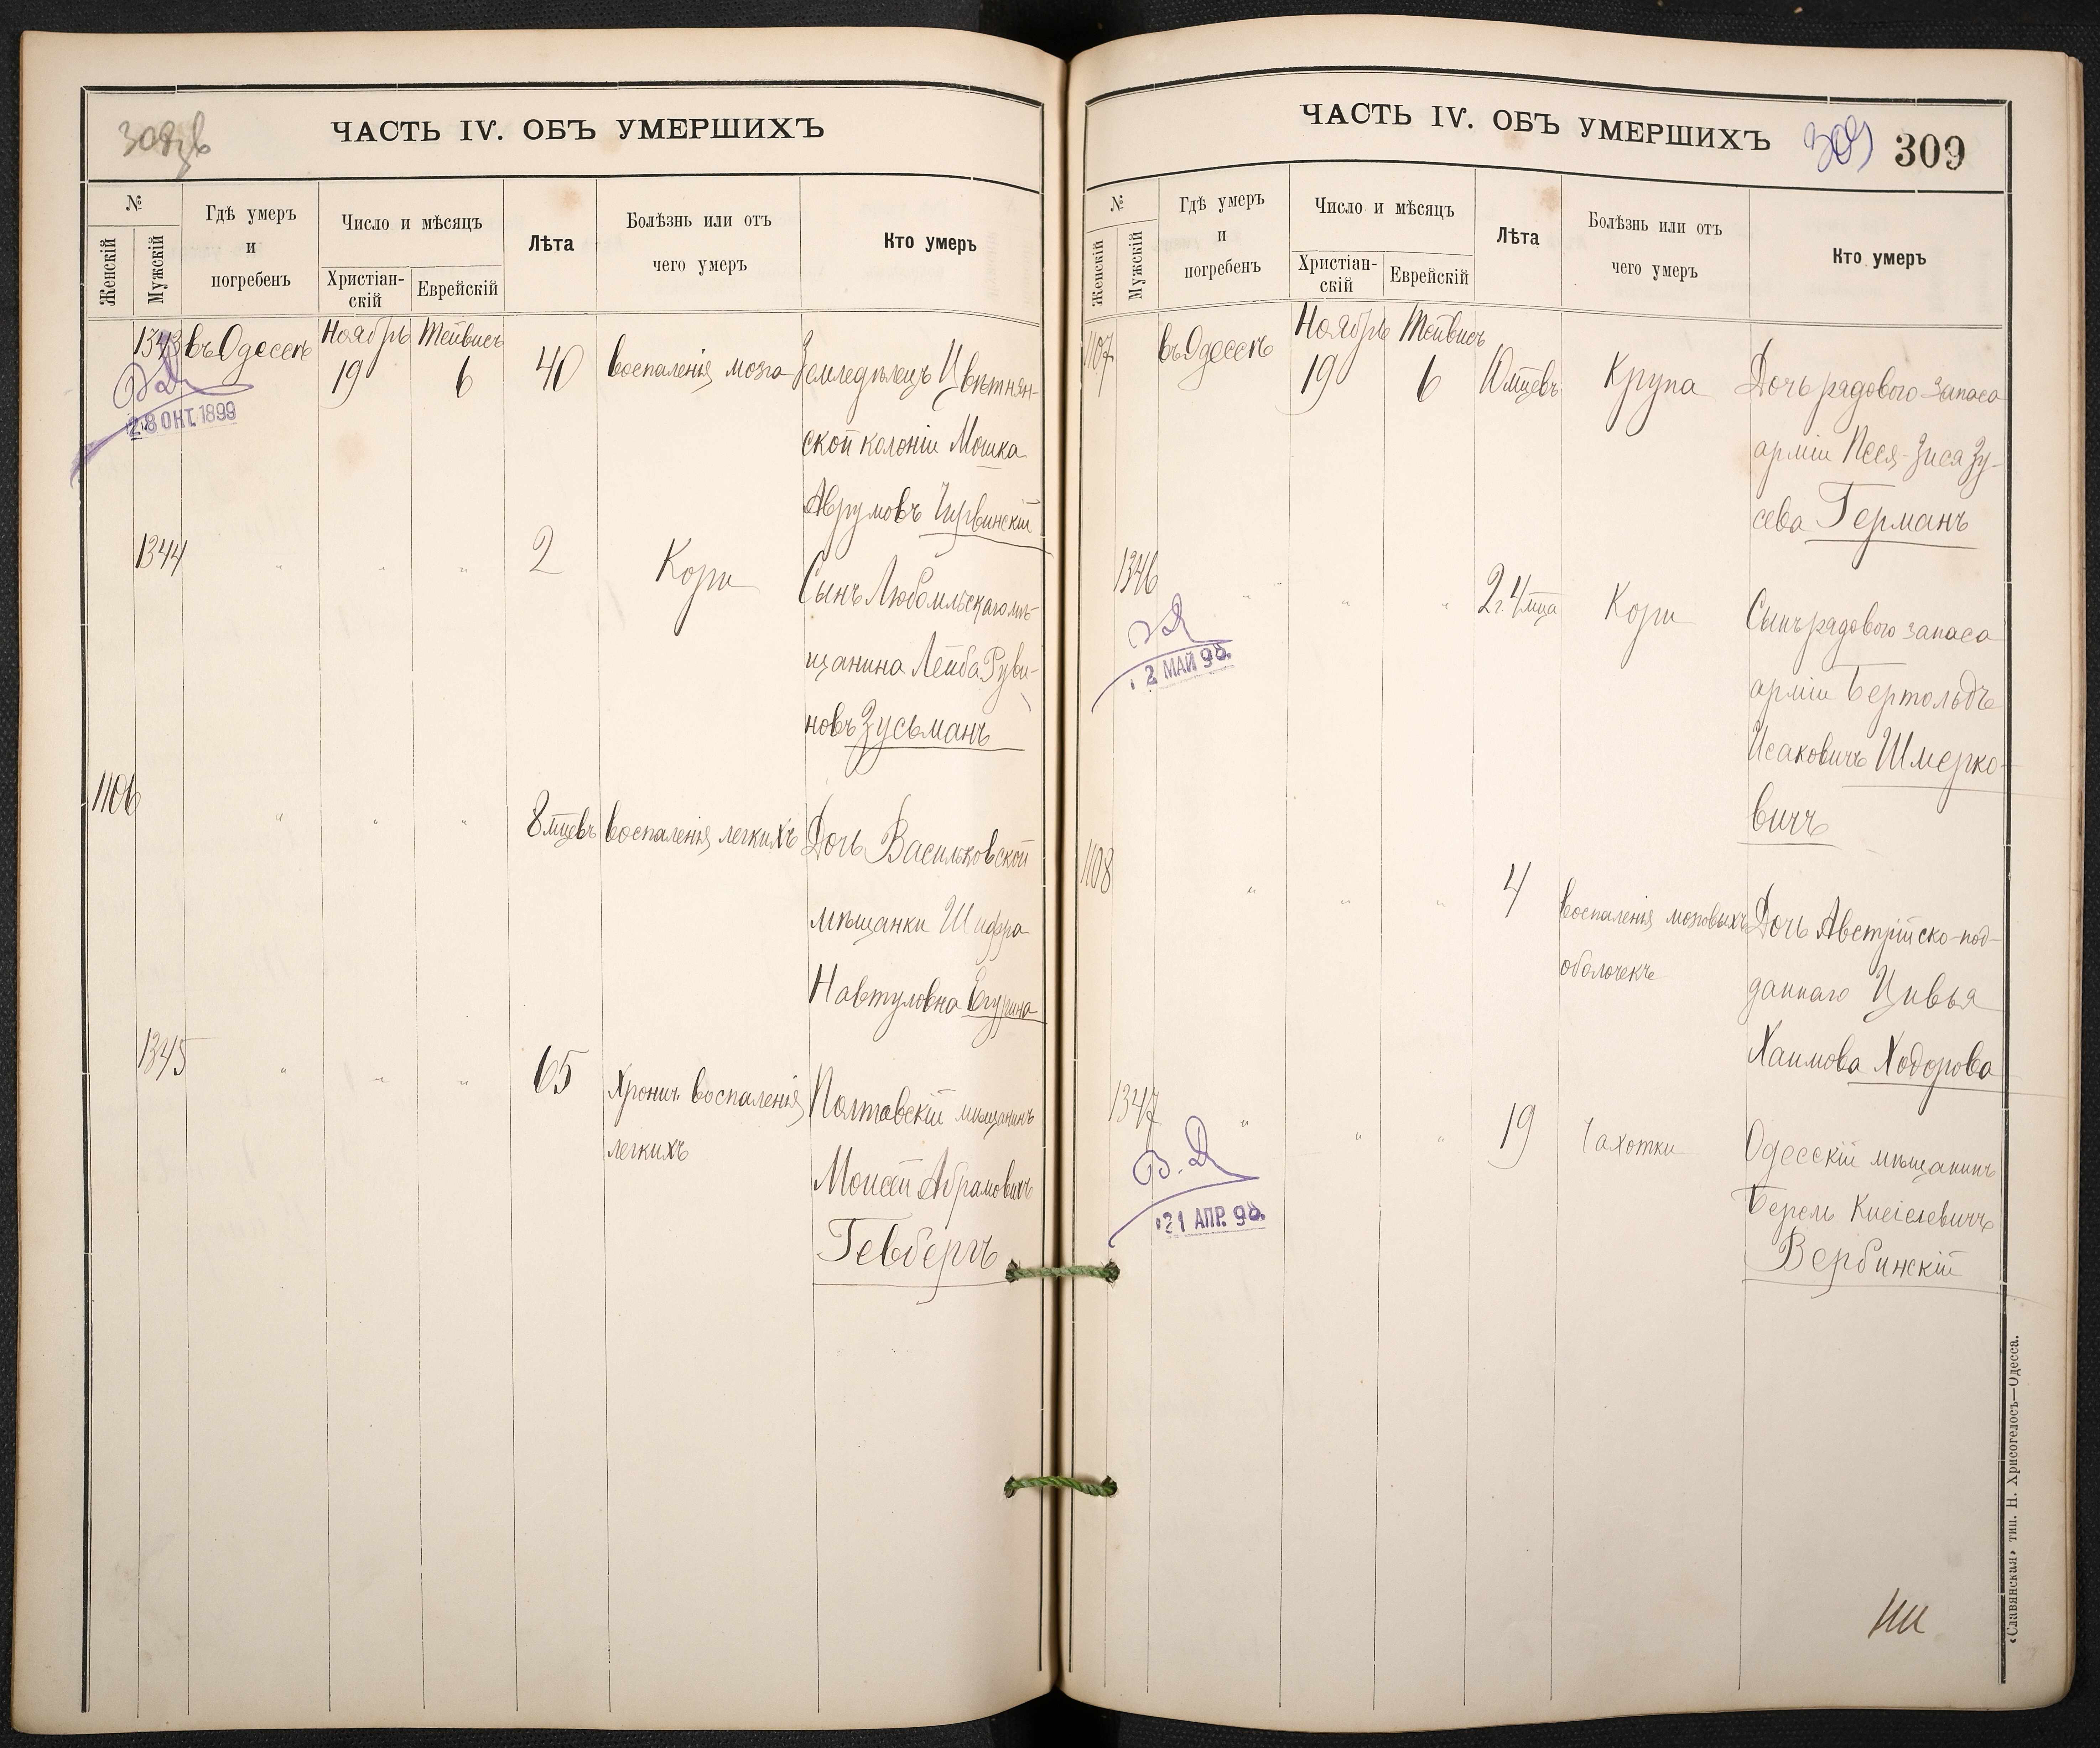 ЧАСТЬ IV. ОБЪ УМЕРШИХЪ
№
Женскій
Мужскій
Гдѣ умеръ
и
погребенъ
Число и мѣсяцъ
Христіан-
скій
Еврейскій
Лѣта
Болѣзнь или отъ
чего умеръ
Кто умеръ
1343 въ Одессѣ Ноябрь 19 Тейвисъ 6 40 воспаленія мозга Земледѣлецъ Цвѣтнян-
ской колоніи Мошка
Аврумовъ
28 ОКТ. 1899
1344 " " " 2 Кори Сынъ Любомльскаго мѣ-
щанина Лейба Руви-
новъ Зусьманъ
1106 " " " 8 мцевъ воспаленія легкихъ Дочь Васильковской
мѣщанки Шифра
Навтуловна
1345 " " " 65 Хронич. воспаленія Полтавскій мѣщанинъ
легкихъ Моисей Абрамовичъ
Гевбергъ
ЧАСТЬ IV. ОБЪ УМЕРШИХЪ 309 309
№
Женскій
Мужскій
Гдѣ умеръ
и
погребенъ
Число и мѣсяцъ
Христіан-
скій
Еврейскій
Лѣта
Болѣзнь или отъ
чего умеръ
Кто умеръ
1107 въ Одессѣ Ноябрь 19 Тейвисъ 6 10 мцевъ Крупа Дочь рядового запаса
арміи Песя-Зиса Зу-
сева Германъ
1346 " " " 2 г. 4 мца Кори Сынъ рядового запаса
арміи Бертольдъ
Исаковичъ Шмерко-
вичъ
2 МАЙ 98.
1108 " " " 4 воспаленія мозговыхъ Дочь Австрійско-под-
оболочекъ даннаго Цивья
Хаимова Ходорова
1347 " " " 19 Чахотки Одесскій мѣщанинъ
Берель Кисіелевичъ
Вербинскій
В. Д
21 АПР. 98.
«Славянская» тип. Н. Хрисогелосъ—Одесса.